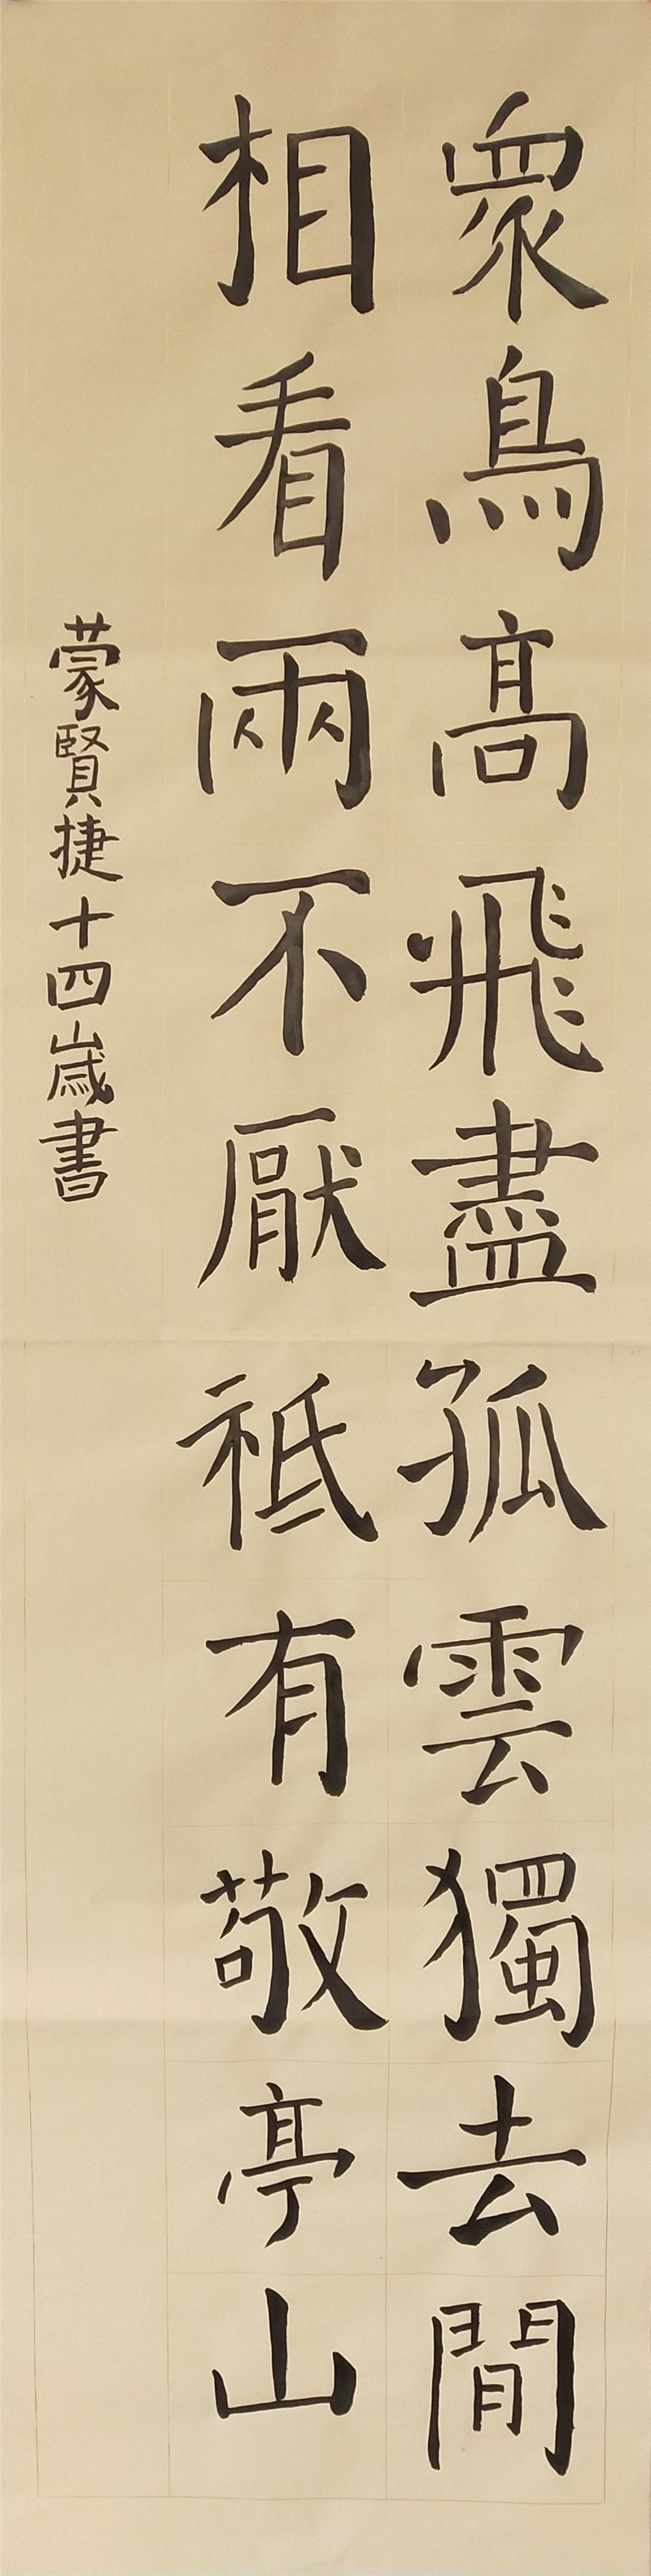 眾鳥高飛盡孤雲獨去閒
相看兩不厭祗有敬亭山
蒙賢捷十四歲書